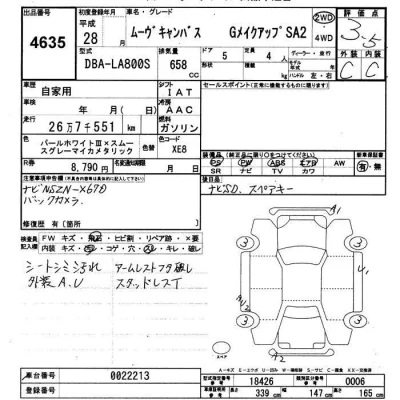 出品番号
4635
初度登録年月
平成
28
車名・グレード
ムーヴキャンバス GメイクアップSA2
2WD
4WD
評価点
3.5
型式
DBA-LA800S
排気量
658
CC
ドア
5
定員
4
ディーラー・並行
モデル
年式
年
ハンドル 左・右
外装
内装
C
C
車歴
自家用
シフト
IAT
車検
年 月
冷房
AAC
走行
26万7千551
km
燃料
ガソリン
色
パールホワイトⅢ×スムー
スグレーマイカメタリック
色替
色No.
XE8
R券
8,790円
名変期限
セールスポイント
装備品
PS PW ABS エアB AW
SR ナビ TV カワ
新車保証書
有・無
後日品
ナビSD、スペアキー
注意事項申告欄
ナビNSZN-X67D
バックカメラ.
修復歴 有(
検査員
記入欄
FW キズ・飛石・ヒビ割・リペア跡・×要
内装 キズ・コゲ・穴・スレ・キレ・破れ
シートシミ汚れ アームレストフタ破レ
外装A,U スタッドレスT
3
3
3
3
U1
X2
スペア
A-キズ E-エクボ U-凹み W-補修跡 S-サビ C-腐食 XX-交換済
車台番号
0022213
登録番号
型式指定番号
18426
類別区分番号
0006
長さ
339
cm
幅
147
cm
高さ
165
cm